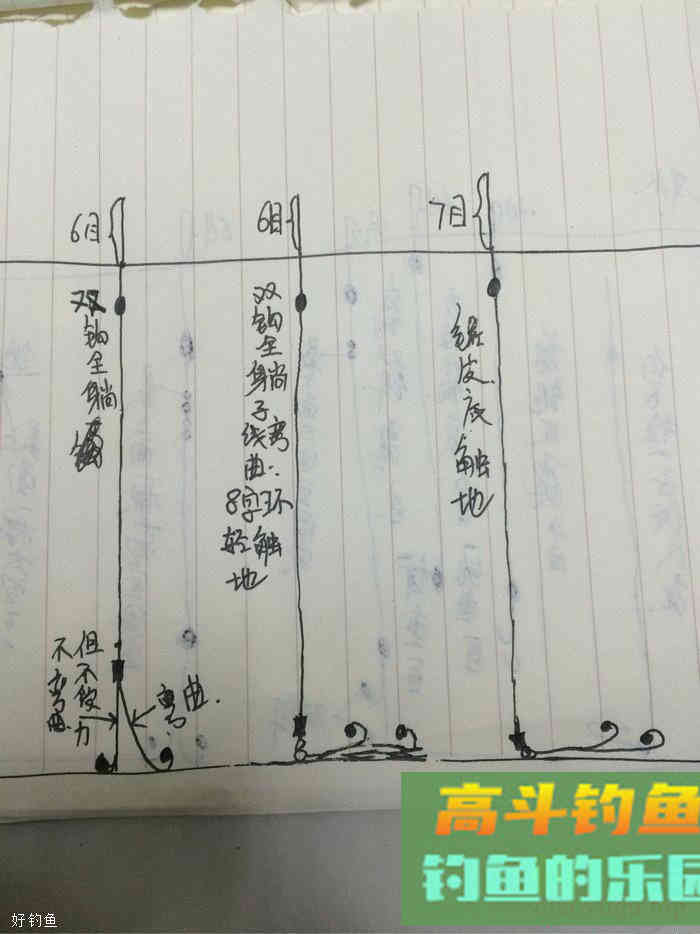 6目
双钩全躺
不弯曲.
但不力
弯曲.
6目
双钩全躺子线弯曲.
8字环
轻触
地
7目
铅皮底触地
高斗钓鱼
钓鱼的乐园
好钓鱼